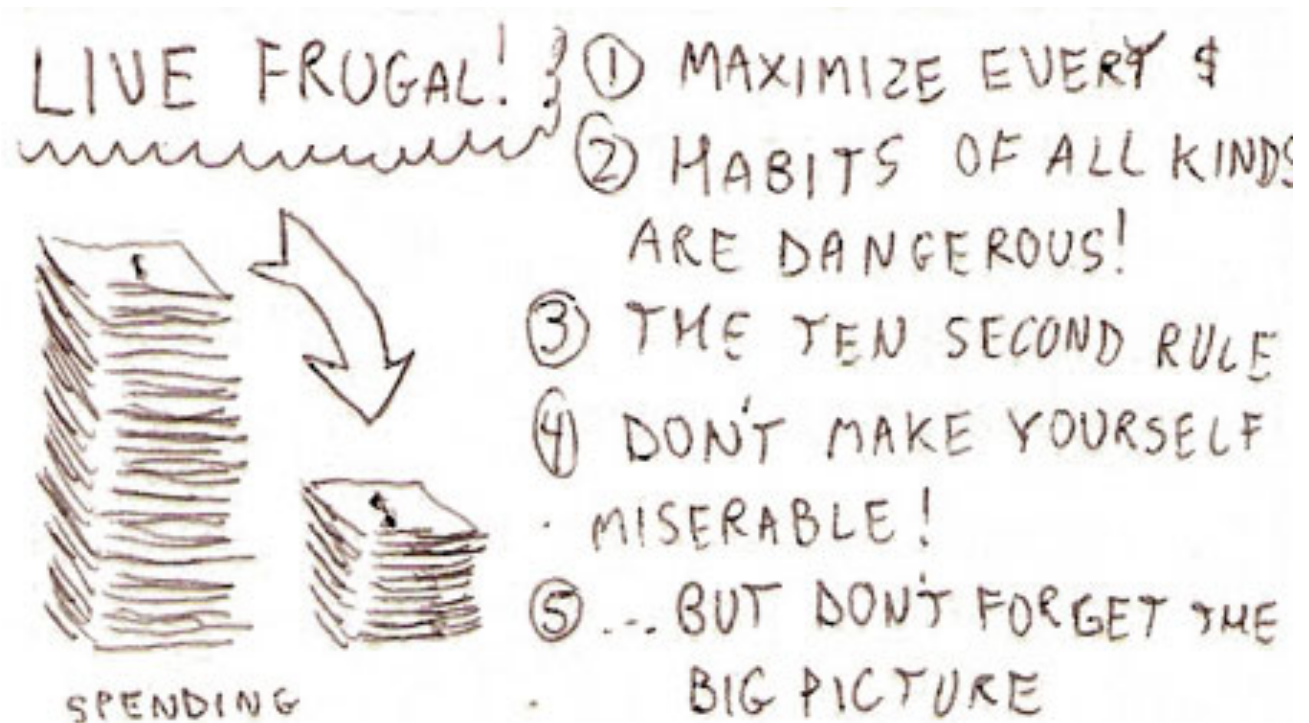 LIVE FRUGAL!
① MAXIMIZE EVERY $
② HABITS OF ALL KINDS
ARE DANGEROUS!
③ THE TEN SECOND RULE
④ DON'T MAKE YOURSELF
MISERABLE!
⑤ ... BUT DON'T FORGET THE
BIG PICTURE
SPENDING